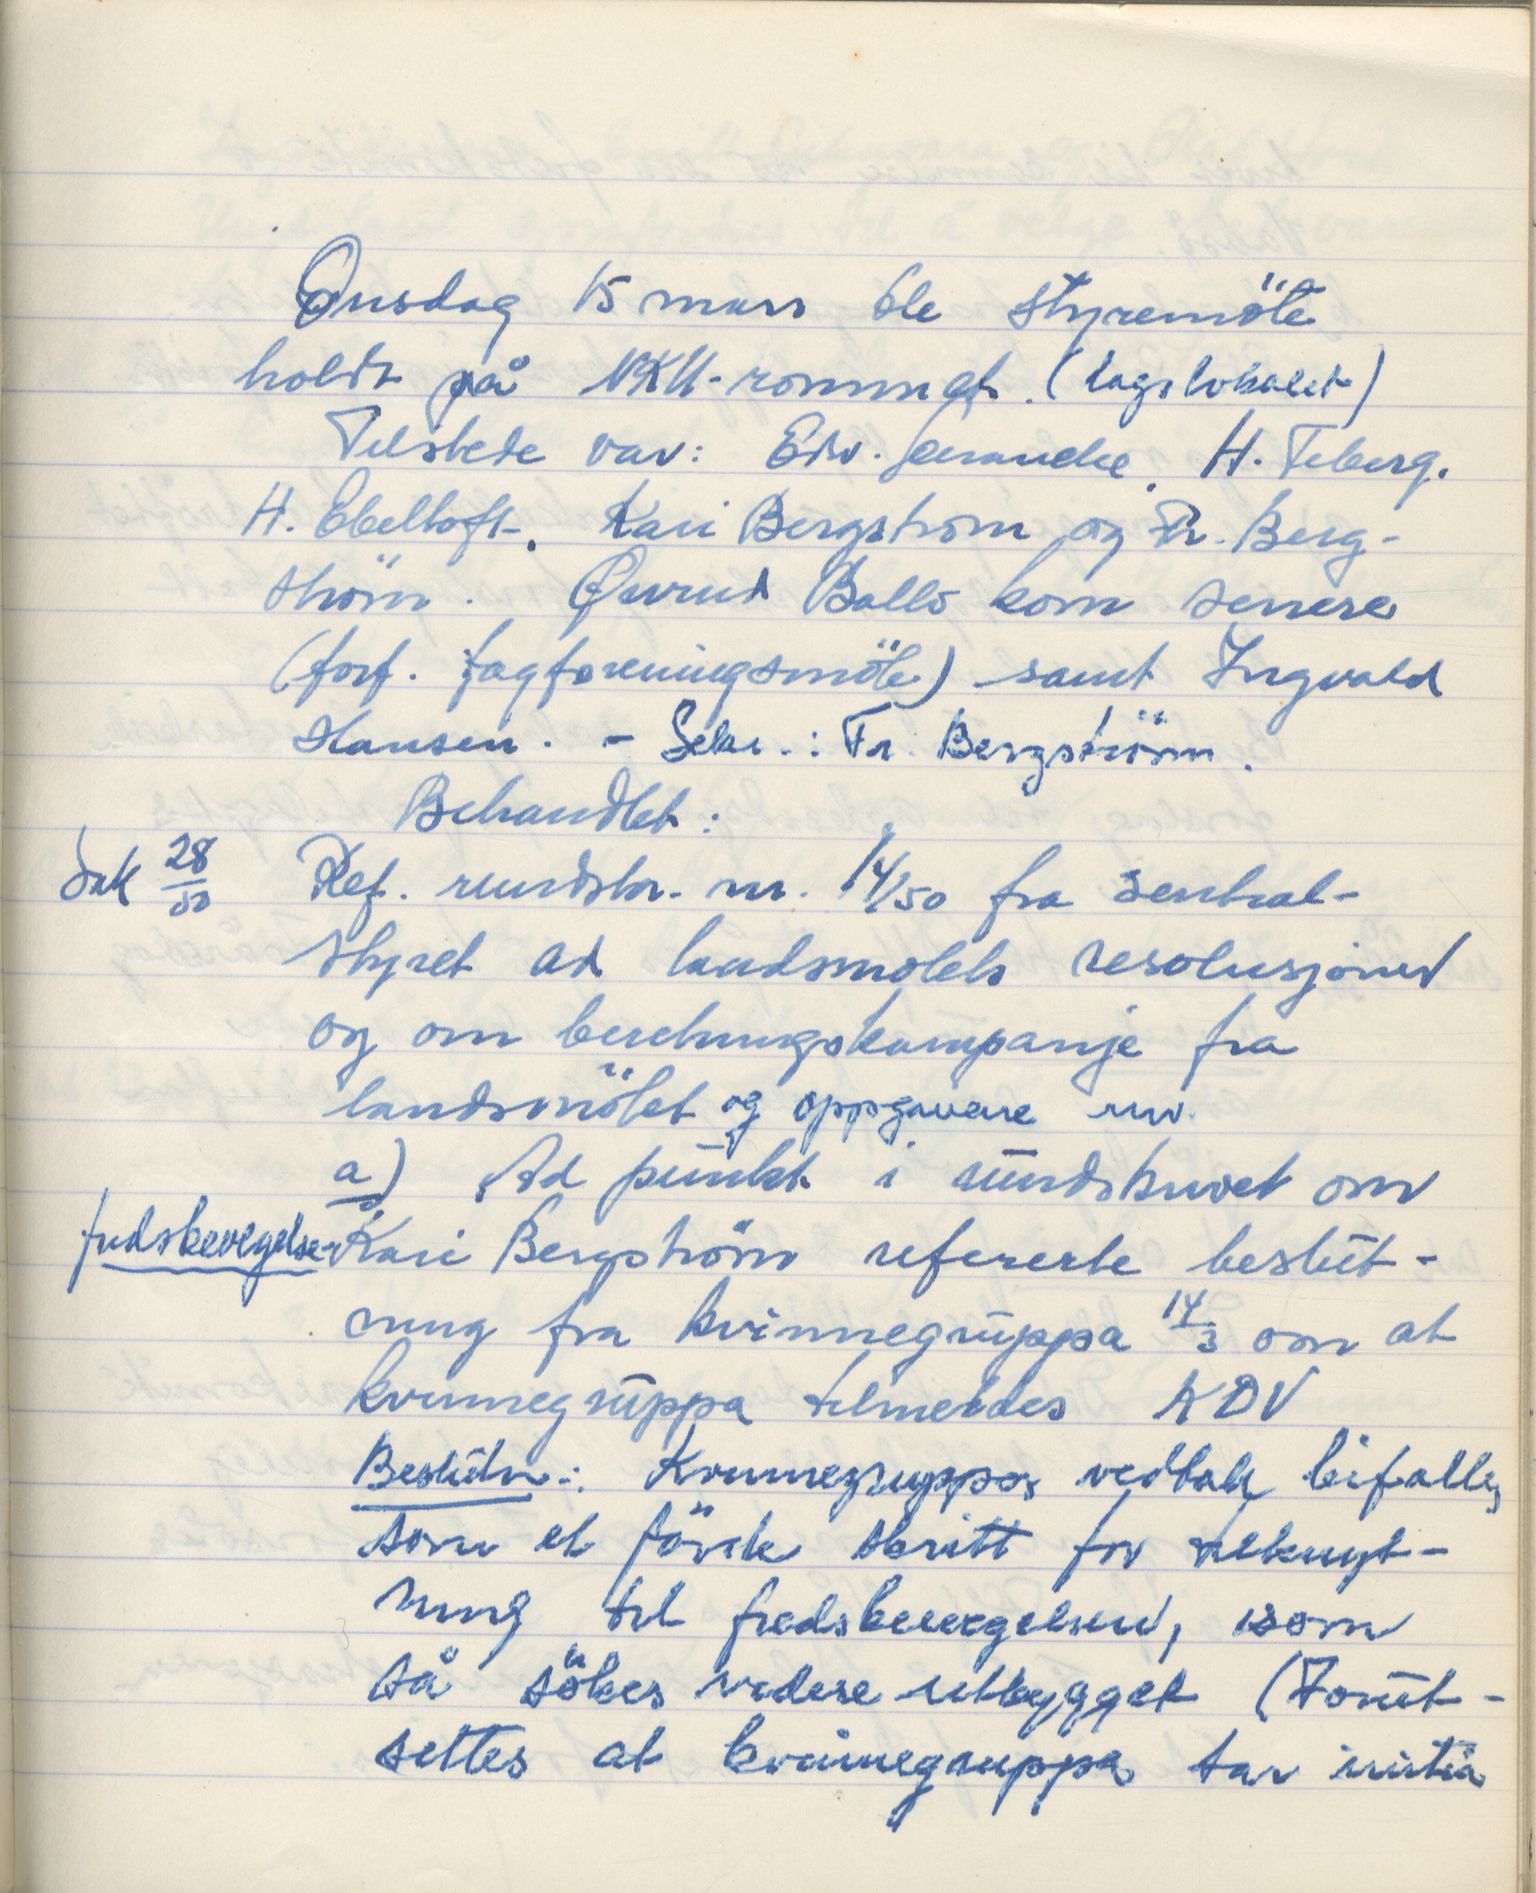 Onsdag 15 mars ble styremöte
holdt på NKU-rommet. (lagslokalet)
Tilstede var: Edv. H. Feberg.
H. Ebeltoft. Kari Bergström og Fr. Berg-
ström. Øivind Ballo kom senere
(forf. fagforeningsmöte) samt Ingvald
Hansen. - Sekr.: Fr. Bergström.
Behandlet:
Sak 28/50 Ref. rundskr. nr. 14/50 fra sentral-
styret ad landsmötets resolusjoner
og om beretningskampanje fra
landsmötet og oppgavene mv.
a) Ad punkt i rundskrivet om
fredsbevegelsen Kari Bergström refererte beslut-
ning fra kvinnegruppa 14/3 om at
kvinnegruppa tilmeldes KDV
Beslutn.: Kvinnegruppas vedtak bifalles
som et förste skritt for tilknyt-
ning til fredsbevegelsen, som
så sökes videre utbygget (Forut-
settes at kvinnegruppa tar initia